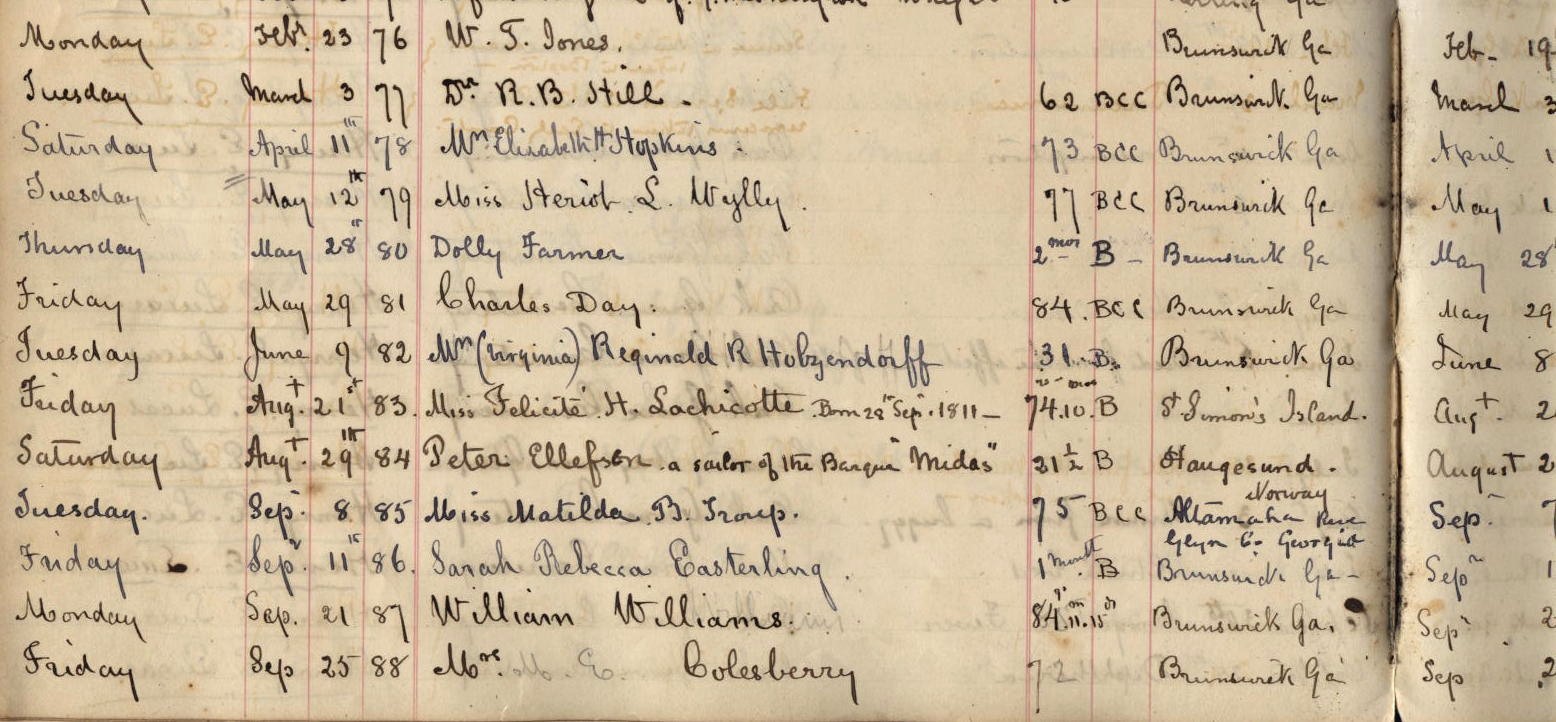 Monday Febr. 23 76 W. T. Jones. Brunswick Ga Feb- 19
Tuesday March 3 77 Dr. R. B. Hill. 62 BCC Brunswick. Ga March 3
Saturday April 11th 78 Mrs Elizabeth H Hopkins. 73 BCC Brunswick Ga April 1
Tuesday May 12th 79 Miss Heriot. L. Wylly. 77 BCC Brunswick Ga May 1
Thursday May 28th 80 Dolly Farmer 2 mos B - Brunswick Ga May 28
Friday May 29 81 Charles Day. 84. BCC Brunswick Ga May 29
Tuesday June 9 82 Mrs (Virginia) Reginald R Holtzendorff 31. B. Brunswick Ga June 8
Friday Augt. 21st 83. Miss Felicité. H. Lachicotte. Born 28th Sepr. 1811- 74.10. B St. Simon's Island. Augt. 2
Saturday Augt. 29th 84 Peter Ellefsen. a sailor of the Barque "Midas" 31½ B Haugesund.
Norway August 2
Tuesday. Sep. 8 85 Miss Matilda. B. Troup. 75 BCC Altamaha
Glyn Co. Georgia Sep. 7
Friday Sepr. 11th 86. Sarah Rebecca Easterling. 1 month B Brunswick Ga- Sepr 1
Monday Sep. 21 87 William Williams. 84.11.15 Brunswick Ga. Sepr 2
Friday Sep 25 88 Mrs. M. E. Colesberry 72 Brunswick Ga Sep 2